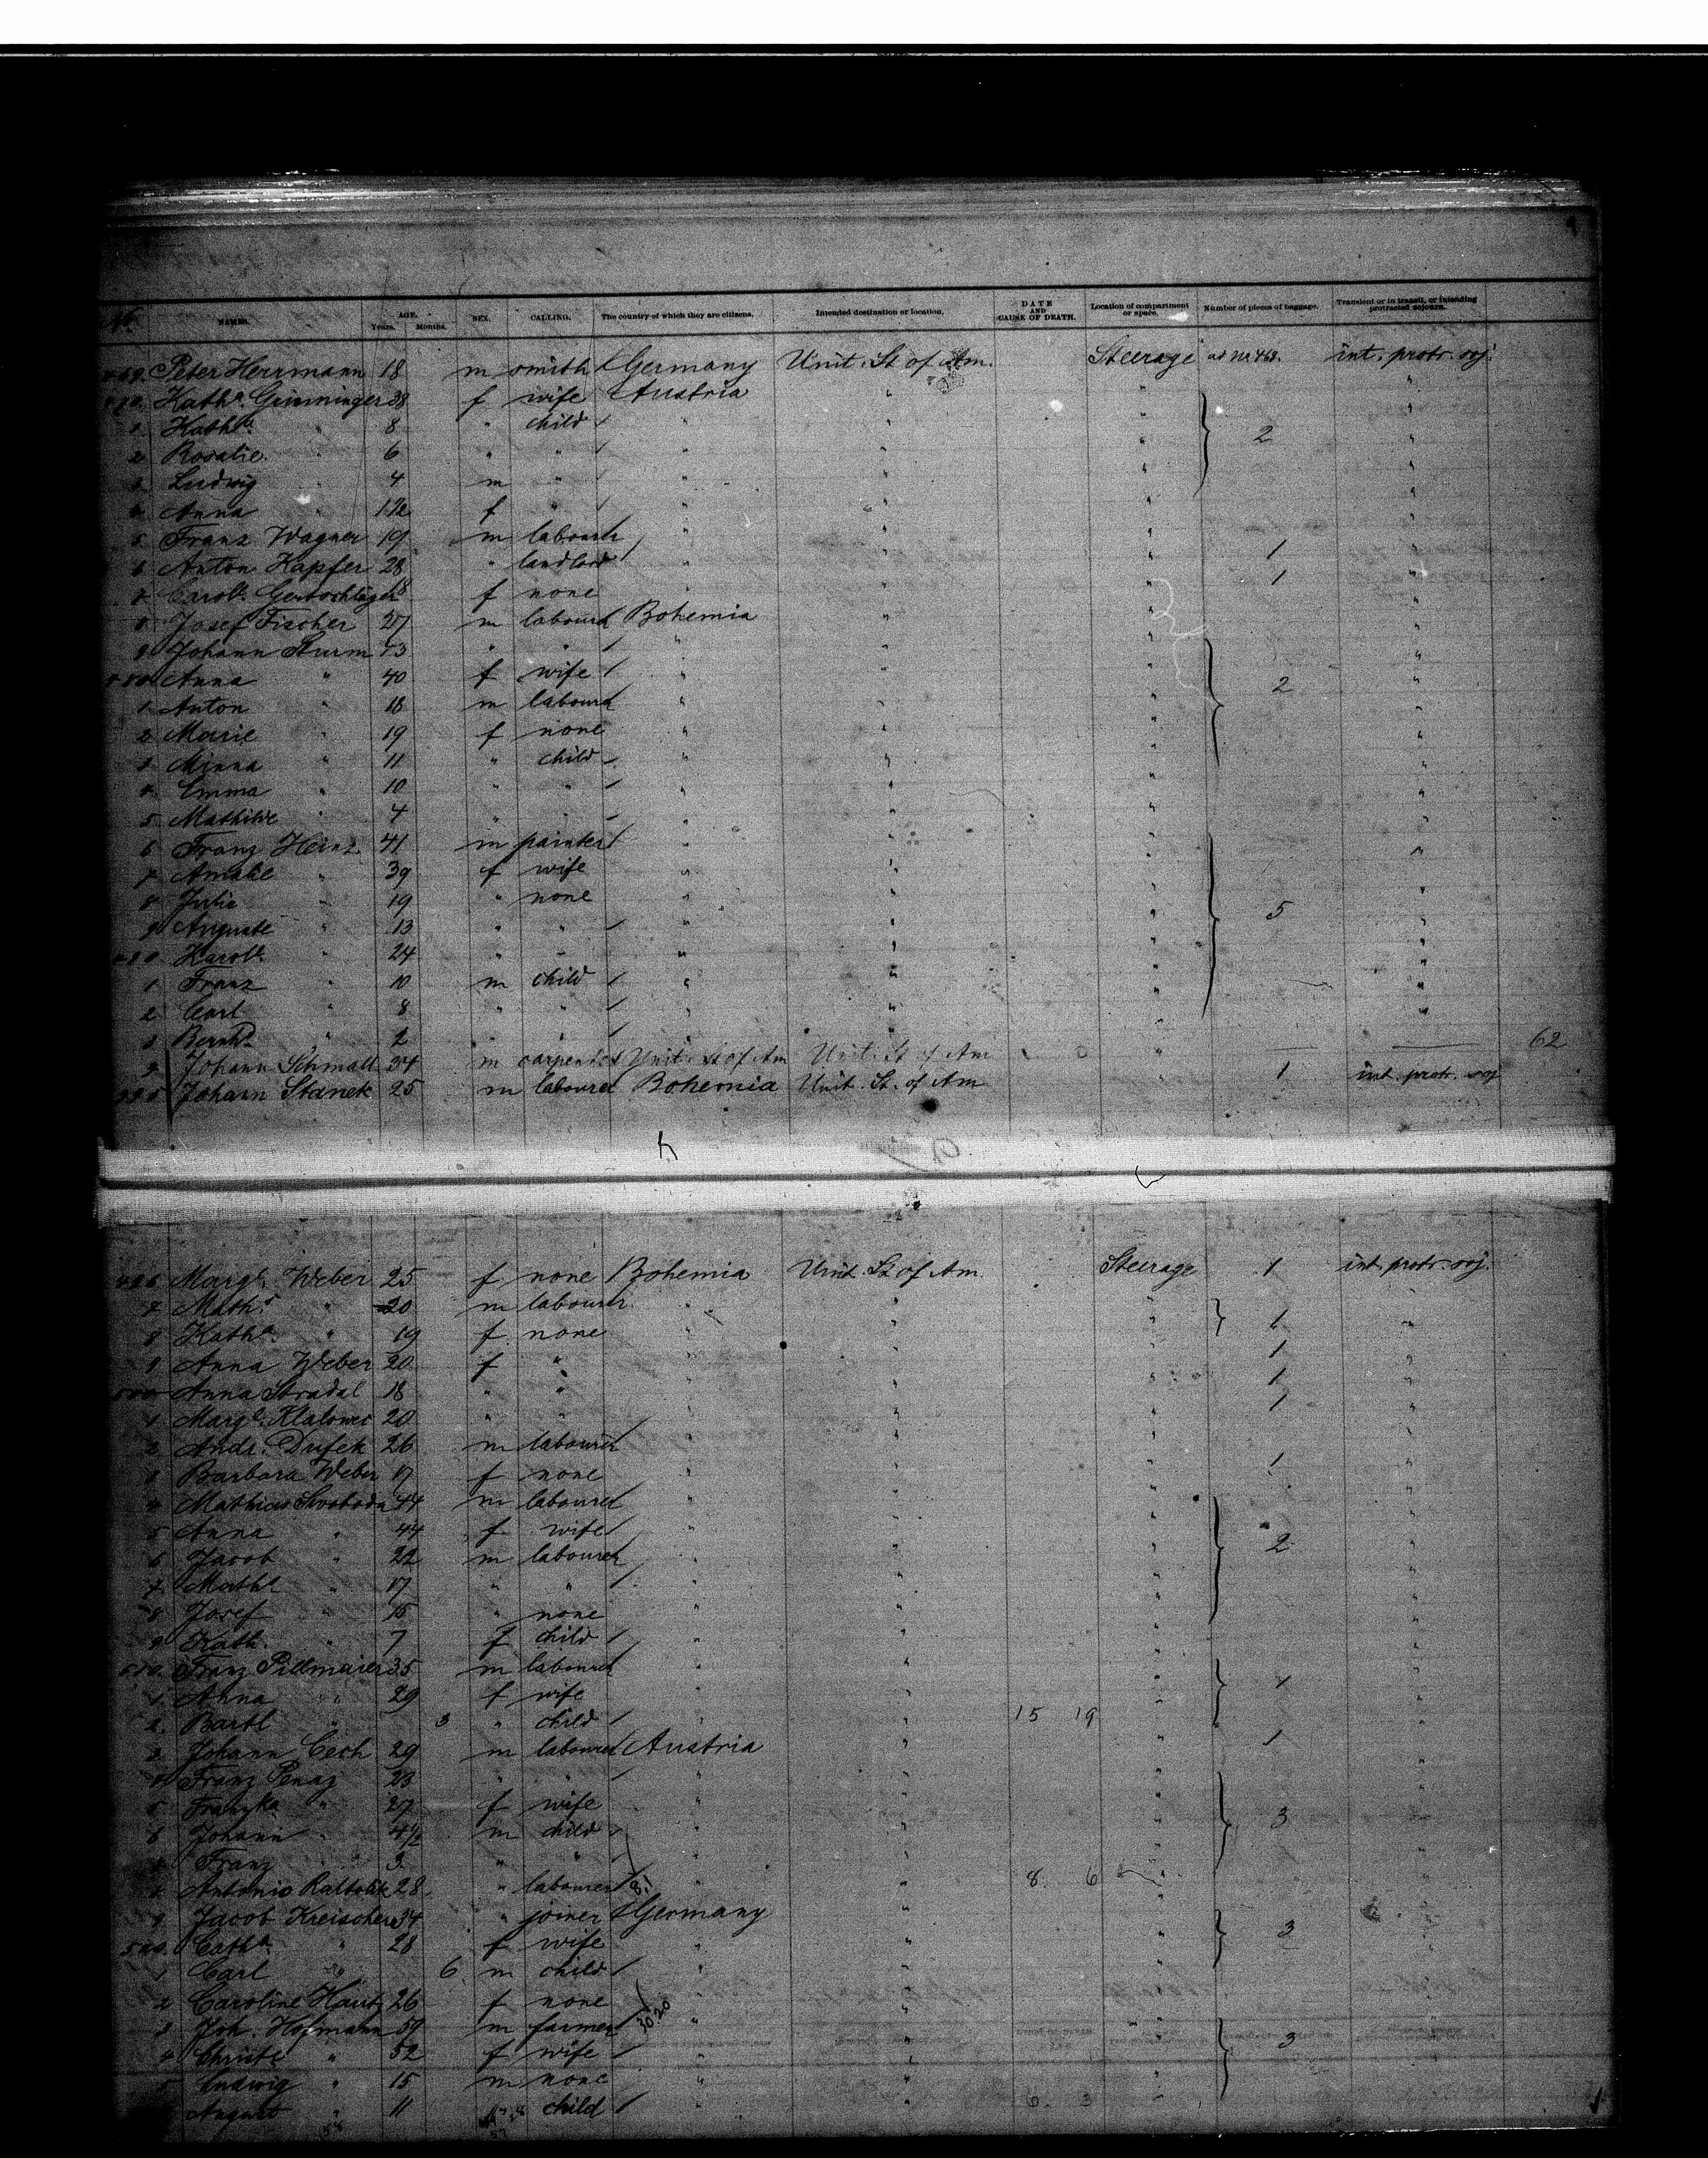 No. NAMES. AGE. Years. Months. SEX. CALLING. The country of which they are citizens. Intended destination or location. DATE AND CAUSE OF DEATH. Location of compartment or space. Number of pieces of baggage. Transient or in transit, or intending protracted sojourn.
469. Peter Herrmann 18 m smith Germany Unit. St of Am. Steerage ad No 468. int. protr. soj.
470. Kath.a 38 f wife Austria " " "
1 Kath.a " 8 " child " " " " 2
2 Rosalie " 6 " " " " " "
3 Ludwig " 4 m " " " " "
4 Anna " f " " " " "
5 Franz Wagner 19 m labourer " " " 1 "
6 Anton Kapfer 28 " landlord " " " 1 "
7 Carol.e 18 f none " " "
8 Josef Fischer 27 m labourer Bohemia " " "
9 Johann Sturm 43 " " " " " "
480 Anna " 40 f wife " " " 2 "
1 Anton " 18 m labourer " " " "
2 Marie " 19 f none " " " "
3 Minna " 11 " child " " " "
4 Emma " 10 " " " " " "
5 Mathilde " 4 " " " " " "
6 Franz Heinz 41 m painter " " " "
7 Amalie " 39 f wife " " " "
8 Julie " 19 " none " " " 5 "
9 Auguste " 13 " " " " " "
490 Karol.e " 24 " " " " " "
1 Franz " 10 m child " " " "
2 Carl " 8 " " " " " "
3 Bernh.d " 2 " " " " " "
4 Johann Schmatt 34 m carpenter Unit. St of Am Unit. St of Am " — — 62
495 Johann Stanek 25 m labourer Bohemia Unit. St. of Am 1 int. protr. soj
496 Marg.t Weber 25 f none Bohemia Unit. St of Am. Steerage 1 int. protr. soj.
7 Math.s " 20 m labourer " " " 1 "
8 Kath.a " 19 f none " " "
9 Anna Weber 20 f " " " " 1 "
500 Anna Stradal 18 " " " " " 1 "
1 Marg.t 20 " " " " " 1 "
2 Andr. Dufek 26 m labourer " " " "
3 Barbara Weber 17 f none " " " 1 "
4 Mathias Svoboda 44 m labourer " " " "
5 Anna " 44 f wife " " " "
6 Jacob " 22 m labourer " " " 2 "
7 Math.s " 17 " " " " " "
8 Josef " 15 " none " " " "
9 Kath. " 7 f child " " " "
510. Franz Pillmaier 35 m labourer " " " "
1 Anna " 29 f wife " " " 1 "
2. Bartl " 3 " child " " 15 19 " "
3. Johann Cech 29 m labourer Austria " " 1 "
4 Franz Penaz 23 " " " " " "
5 Franzka " 27 f wife " " " 3 "
6 Johann " 4 1/2 m child " " " "
7 Franz " 3 " " " " " "
8 Antonio 28 " labourer " " 8. 6 " "
9 Jacob Kreischer 34 " joiner Germany " " 3 "
520. Cath.a " 28 f wife " " " "
1 Carl " 6 m child " " " "
2 Caroline Hautz 26 f none " " " "
3 Joh. Hofmann 59 m farmer 30.20 " " " "
4 " 52 f wife " " " 3 "
5 Ludwig " 15 m none " " " "
August " 11 child " " 6. 3 " "